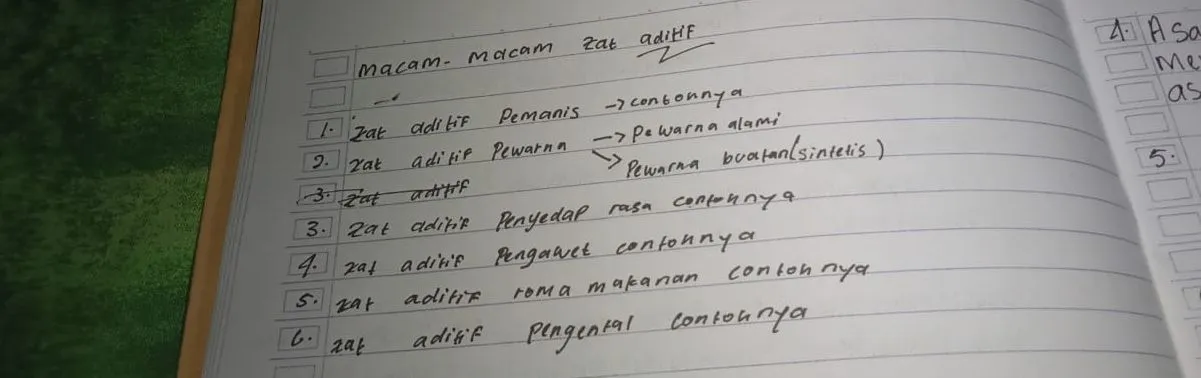 macam-macam zat aditif
1. zat aditif Pemanis → contohnya
2. zat aditif Pewarna → Pewarna alami
→ Pewarna buatan (sintetis)
3. zat aditif
3. zat aditif Penyedap rasa contohnya
4. zat aditif Pengawet contohnya
5. zat aditif roma makanan contohnya
6. zat aditif pengental contohnya
4. Asa
Me
as
5.